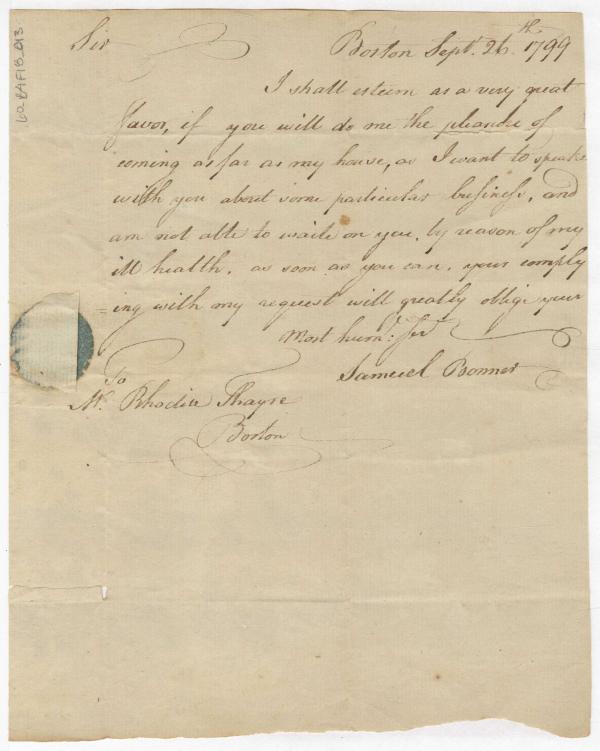 Sir Boston Sept. 26th 1799
I shall esteem as a very great
favor, if you will do me the pleasure of
coming as far as my house, as I want to speake
with you about some particular business, and
am not able to waite on you, by reason of my
ill health. as soon as you can. your comply
=ing with my request will greatly oblige your
Most hum: Ser
Samuel Bonner
To
Mr. Thayre
Boston